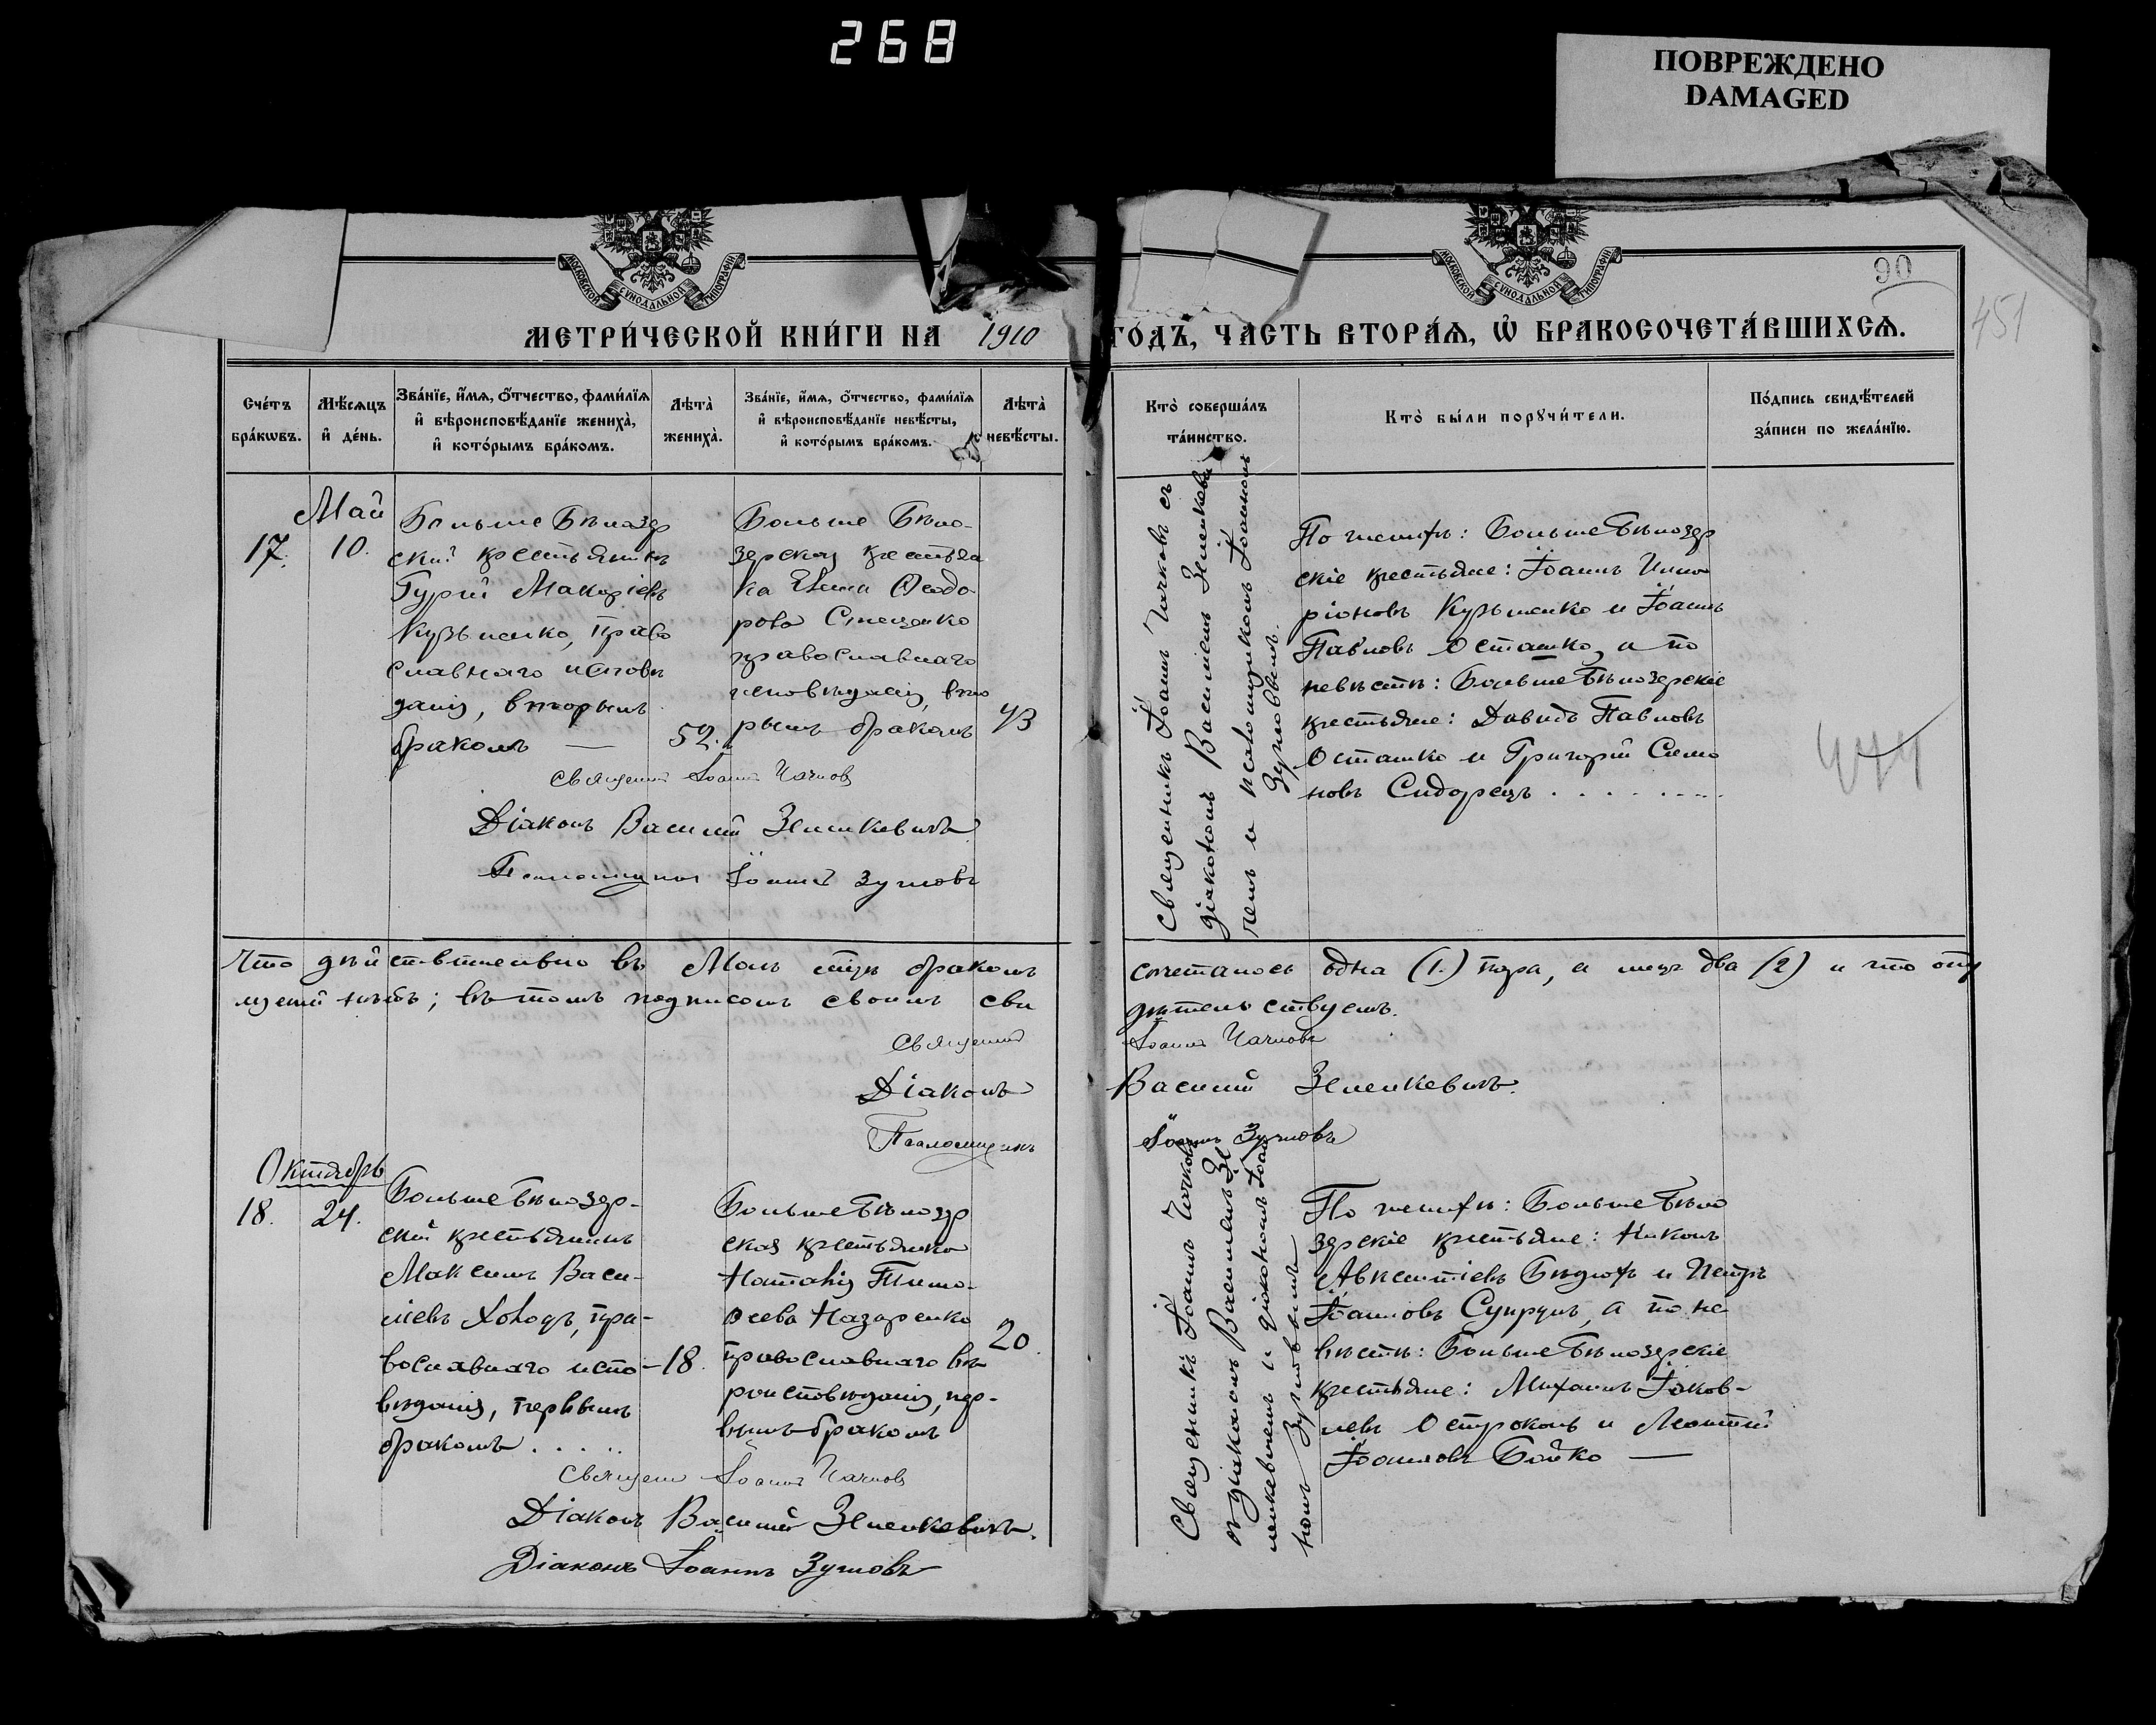 268
ПОВРЕЖДЕНО
DAMAGED
90
451
МОСКОВСКОЙ СѴНОДАЛЬНОЙ ТИПОГРАФІИ
МОСКОВСКОЙ СѴНОДАЛЬНОЙ ТИПОГРАФІИ
МЕТРИ́ЧЕСКОЙ КНИ́ГИ НА 1910 ГОДЪ, ЧАСТЬ ВТОРА́Я, Ѽ БРАКОСОЧЕТА́ВШИХСЯ.
Счéтъ
брáкѡвъ.
Мѣ́сяцъ
и҆ дéнь.
Звáнїе, и҆́мя, ѻ҆́тчество, фами́лїя
и҆ вѣроисповѣ́данїе женихà,
и҆ кото́рымъ брáкомъ.
Лѣтà
женихà.
Звáнїе, и҆́мя, ѻ҆́тчество, фами́лїя
и҆ вѣроисповѣ́данїе невѣ́сты,
и҆ кото́рымъ брáкомъ.
Лѣтà
невѣ́сты.
Ктò совершáлъ
тáинство.
Ктò бы́ли порꙋчи́тели.
Пóдпись свидѣ́телей
зáписи по желáнїю.
Май
17.
10.
Больше Бѣлозер
скій крестьянинъ
Гурій Макаріевъ
Кузьменко, право
славнаго исповѣ
данія, вторымъ
бракомъ —
52.
Больше Бѣло-
зерская крестьян
ка Ѳеодо
рова Стеценко
православнаго
исповѣданія, вто
рымъ бракомъ
43
Священникъ Іоаннъ Чачковъ съ
діакономъ Василіемъ Зелинкеви
чемъ и псаломщикомъ Іоанномъ
По женихѣ: Больше Бѣлозер
скіе крестьяне: Іоаннъ Илла
ріоновъ Кузьменко и Іоаннъ
Павловъ Осташко, а по
невѣстѣ: Больше Бѣлозерскіе
крестьяне: Давидъ Павловъ
Осташко и Григорій Симо
новъ Сидорецъ
Священникъ Іоаннъ
Діаконъ Василій
Псаломщикъ Іоаннъ
Что дѣйствительно въ Маѣ сихъ бракомъ
сочеталось одна (1.) пара, а лицъ два (2) и что опу
щеній нѣтъ; въ томъ подписомъ своимъ сви
дѣтельствуемъ.
Священникъ Іоаннъ
Діаконъ Василій
Псаломщикъ Іоаннъ
Октябрь
18.
24.
Больше Бѣлозер-
скій крестьянинъ
Максимъ Васи-
ліевъ Холодъ, пра-
вославнаго испо-
вѣданія, первымъ
бракомъ
18.
Больше Бѣлозер
ская крестьянка
Наталія Тимо-
ѳеева Назаренко
православнаго вѣ
роисповѣданія, пер-
вымъ бракомъ
20.
По женихѣ: Больше Бѣло
зерскіе крестьяне: Никонъ
Авксентіевъ и Петръ
Іоанновъ Супрунъ, а по не
вѣстѣ: Больше Бѣлозерскіе
крестьяне: Михаилъ Іаков-
левъ и
Іоанновъ Бойко —
Священникъ Іоаннъ
Діаконъ Василій
Діаконъ Іоаннъ